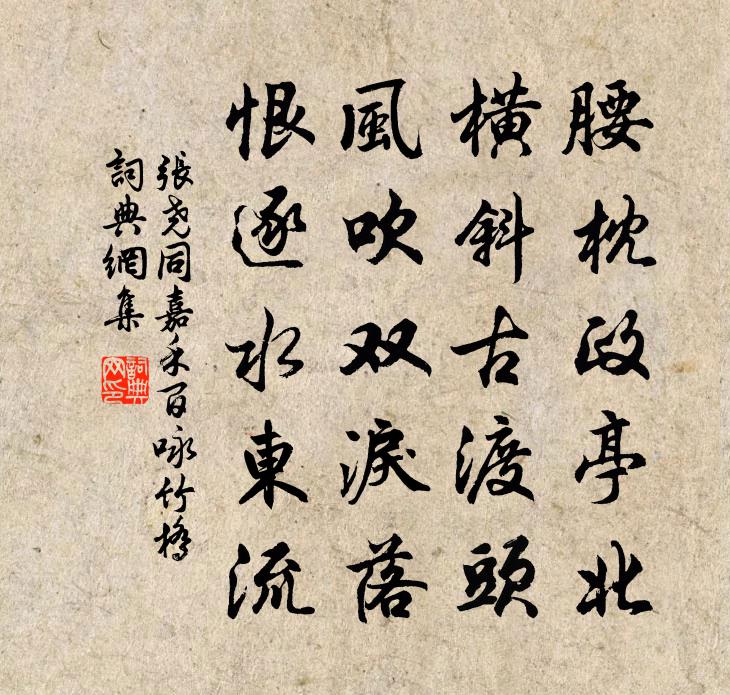 腰枕政亭北
橫斜古渡頭
風吹双淚落
恨逐水東流
張堯同嘉禾百咏竹橋
詞典網集
詞典
网印